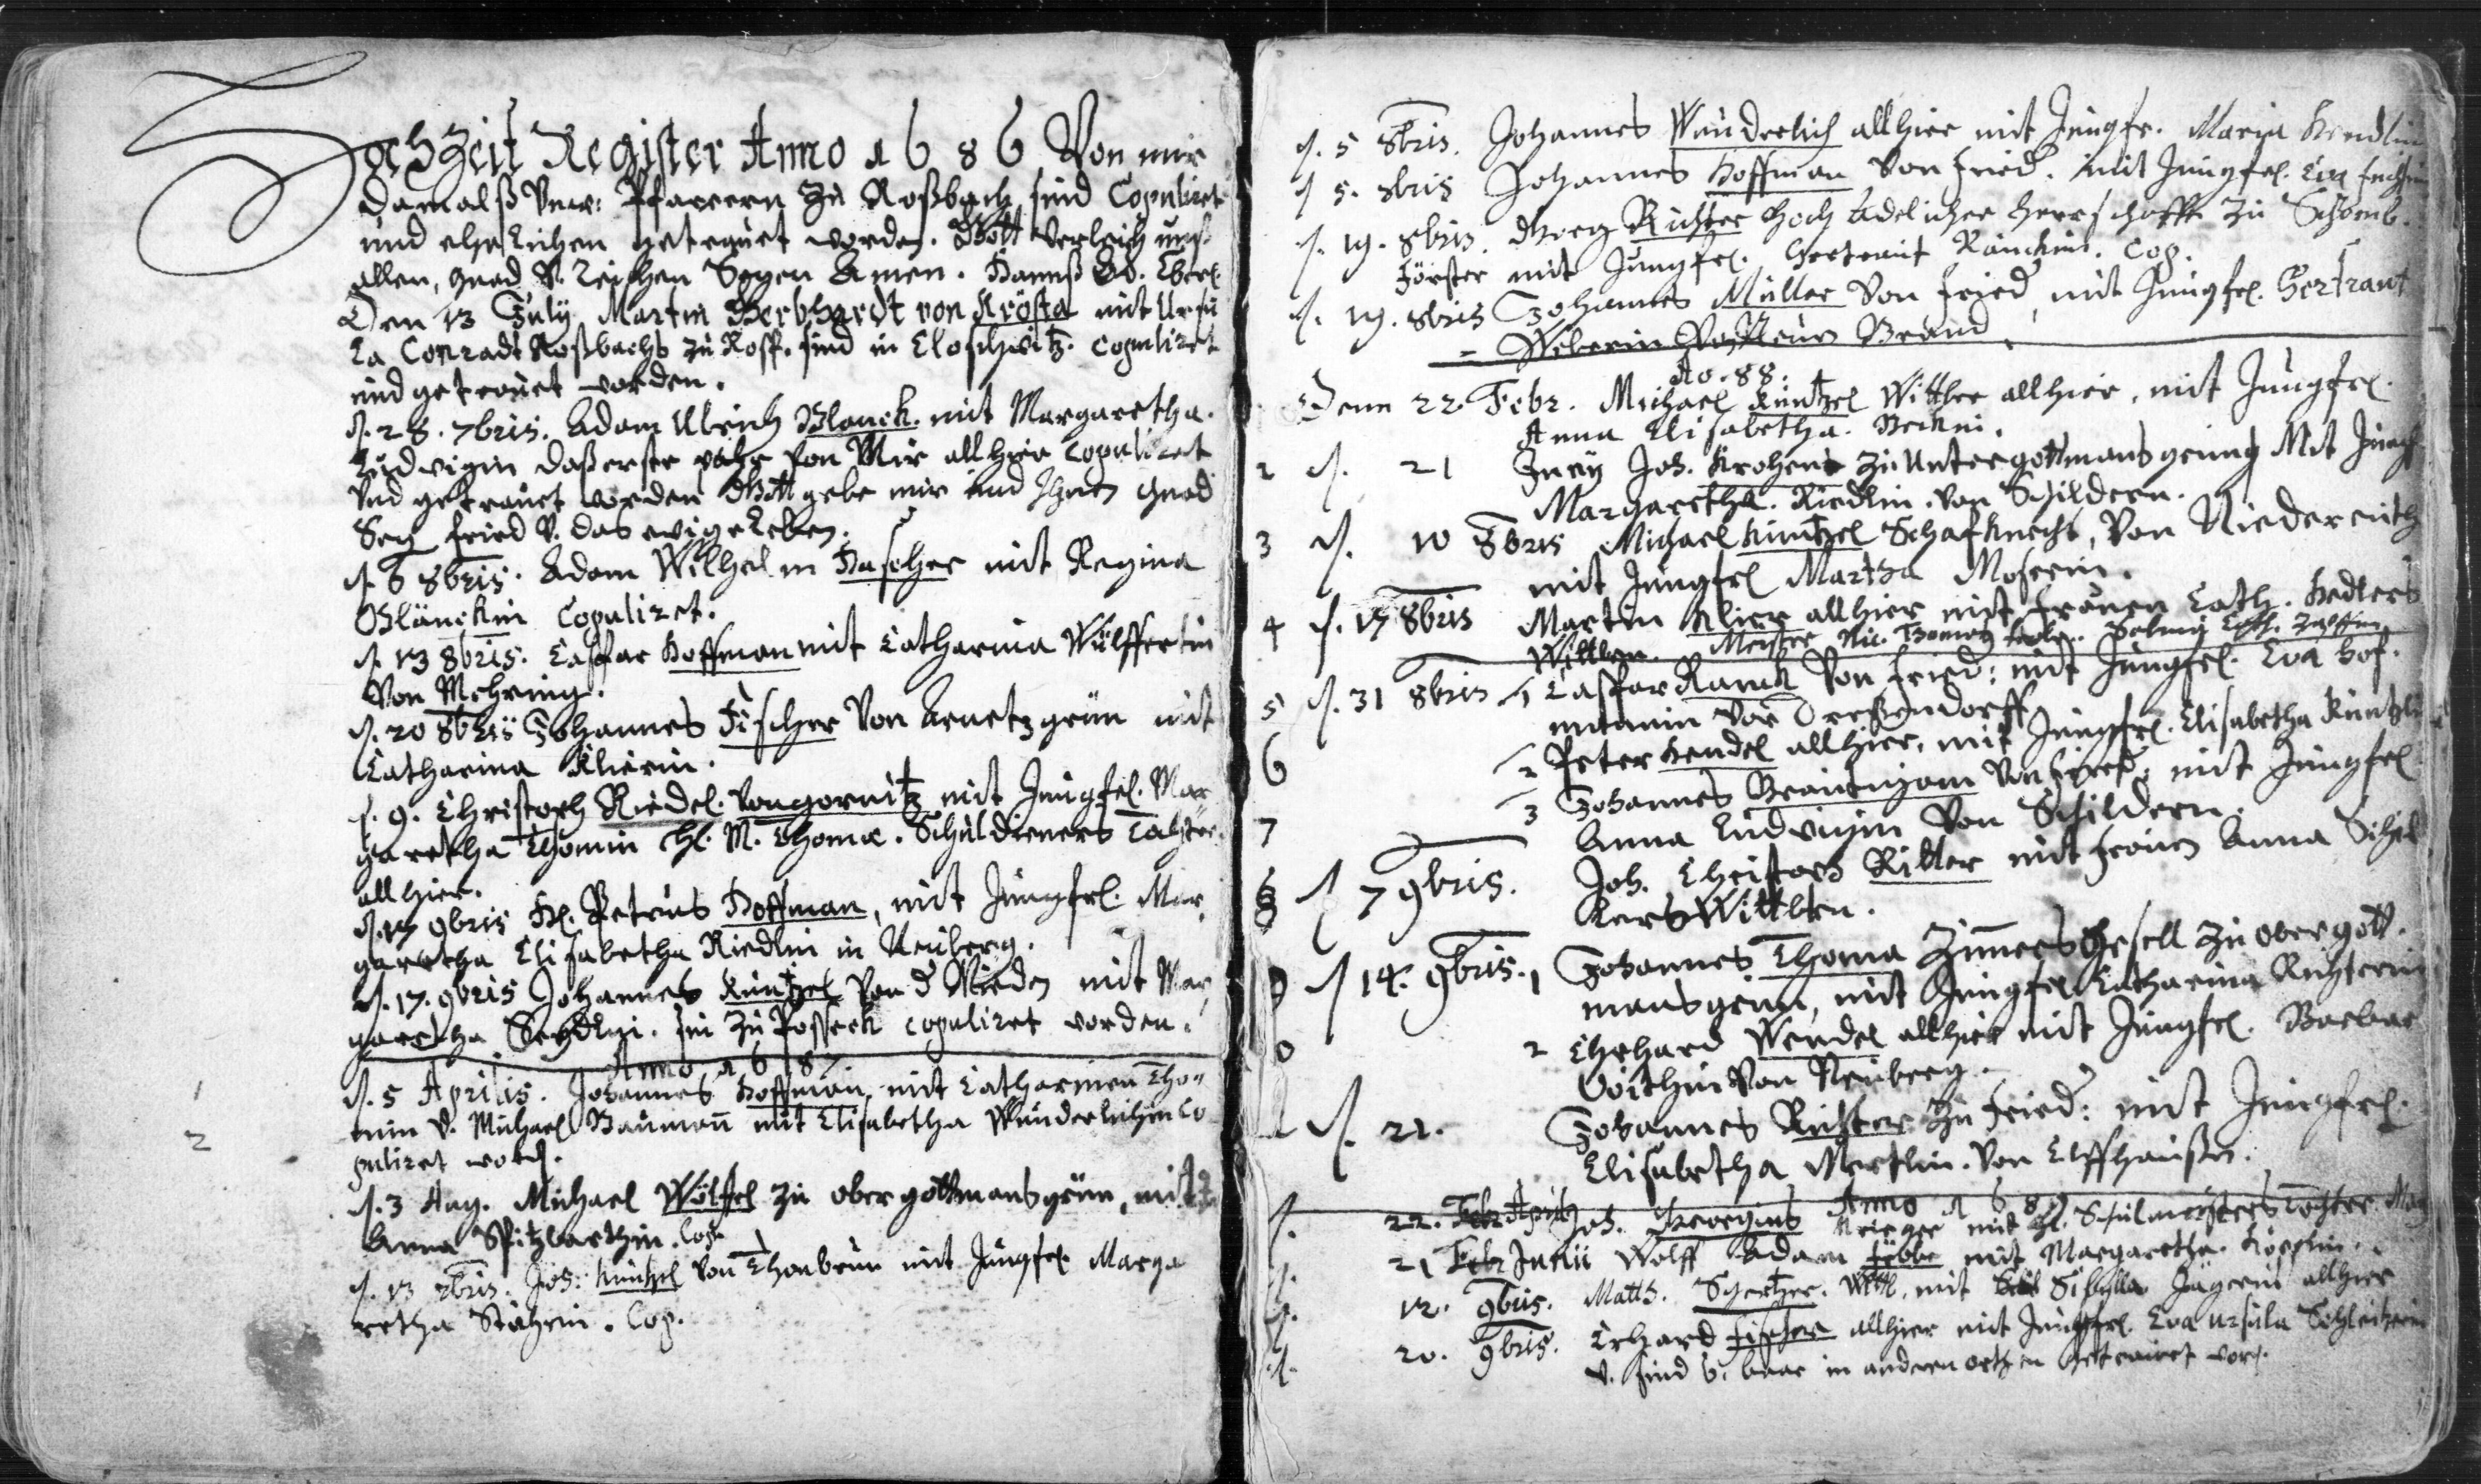 Hochzeit Register Anno 1686 Von mir
damalß Pfarrern zu Roßbach, sind Copuliret
und ehelichen getrauet worden. Gott verleih unß
allen, gnad v. reichen Segen Amen. Hannß Ad. Eber.
Den 13 July Martin Gerbhardt von Krösta mit Ursu
la Conradt Roßbachs zu Roßb. sind in Eloschwitz copuliret
und getrauet worden.
d. 28. 7bris. Adam Ulrich Blanck. mit Margaretha.
Ludwigin daß erste pahr von Mir allhier Copuliret
Und getrauet worden Gott gebe mir und Ihnen gnad
Seg. fried v. das ewige Leben.
d. 6 8bris. Adam Wilhelm Hascher mit Regina
Blänckin Copuliret.
d. 13 8bris. Caspar Hoffman mit Catharina Wülffertin
Von Mehring.
d. 20 8bris Johannes Fischer Von Arnetzgrün mit
Catharina Klierin.
d. 9. Christoph Riedel. von gornitz mit Jungfrl. Mar
garetha Thomin Hl. M. Thomæ. Schuldieners Tochter.
allhier.
d. 17 9bris H. Petrus Hoffman, mit Jungfrl. Mar
garetha Elisabetha Riedlin in Neuberg.
d. 17. 9bris Johannes Küntzel Von d Wieden mit Mar
garetha Seydlin. zu Posseck copuliret worden.
Anno 1687
1 d. 5 Aprilis. Johannes Hoffman mit Catharinen Tho
2 min v. Michael Baumañ mit Elisabetha Wunderlichin co
puliret word.
d. 3 Aug. Michael Wölfel zu obergottmansgrün, mit
Anna Spitzbarthin. Cop.
d. 13 7bris. Joh. Küntzel Von Thonbrun mit Jungfrl. Marga
retha Stöhrin. Cop.
d. 5 8bris. Johannes Wunderlich allhier mit Jungfr. Maria Hendlin
d 5. 8bris Johannes Hoffman Von Fried. mit Jungfrl. Eva
d. 19. 8bris. Georg Richter Hoch Adelicher Herrschafft zu Schönb.
Förster mit Jungfrl. Gertraut Cop.
d. 19. 8bris Johannes Müller Von Fried, mit Jungfrl. Gertraut
Weberin Neuen Brand
Ao. 88.
Denn 22. Febr. Michael Küntzel Witber allhier, mit Jungfrl.
Anna Elisabetha. Beckin.
2 d. 21 Juny Joh. Krohens zu Untergottmansgrüng Mit Jungf
Margaretha. Riedlin. von Schildern.
3 d. 10 8bris Michael Küntzel Schafknecht, Von Niederreuth
mit Jungfrl Martha Moserin.
4 d. 17 8bris Martin Klier allhier mit Frauen Cath. Hedlers
Wittben. Meister
5 d. 31 8bris 1 Caspar Ranck Von Fried: mit Jungfrl. Eva Hof.
mannin von Dreßendorff
6 2 Peter Hendel allhier, mit Jungfrl. Elisabetha Küntzli
7 3 Johannes Bräutigam Von Fried. mit Jungfrl
Anna Ludwigin Von Schildern.
8 d 7 9bris. Joh. Christoph Ritter mit Frauen Anna Schil
lers Wittben.
9 d 14. 9bris. 1 Johannes Thoma Zimmers Gesell zu obergott.
mansgrün, mit Jungfrl Catharina Richterin
0 2 Ehrhard Wendel allhier mit Jungfrl. Barbar
Voithin Von Neuberg.
d. 21. Johannes Richter zu Fried: mit Jungfrl.
Elisabetha Mertlin. Von Elffhaußn.
Anno 1689
d. 22. Aprilis Joh. Georgius Krieger mit Hl. Schulmeisters Tochter. Mar
d. 21 Junii Wolff Adam mit Margaretha.
d. 12. 9bris. Matth. Wittl. mit Sibylla Jägerin allhier
d. 20. 9bris. Erhard Fischer allhier mit Jungfrl. Eva Ursula
v. sind 6. baar in andern orthen getrauet word.